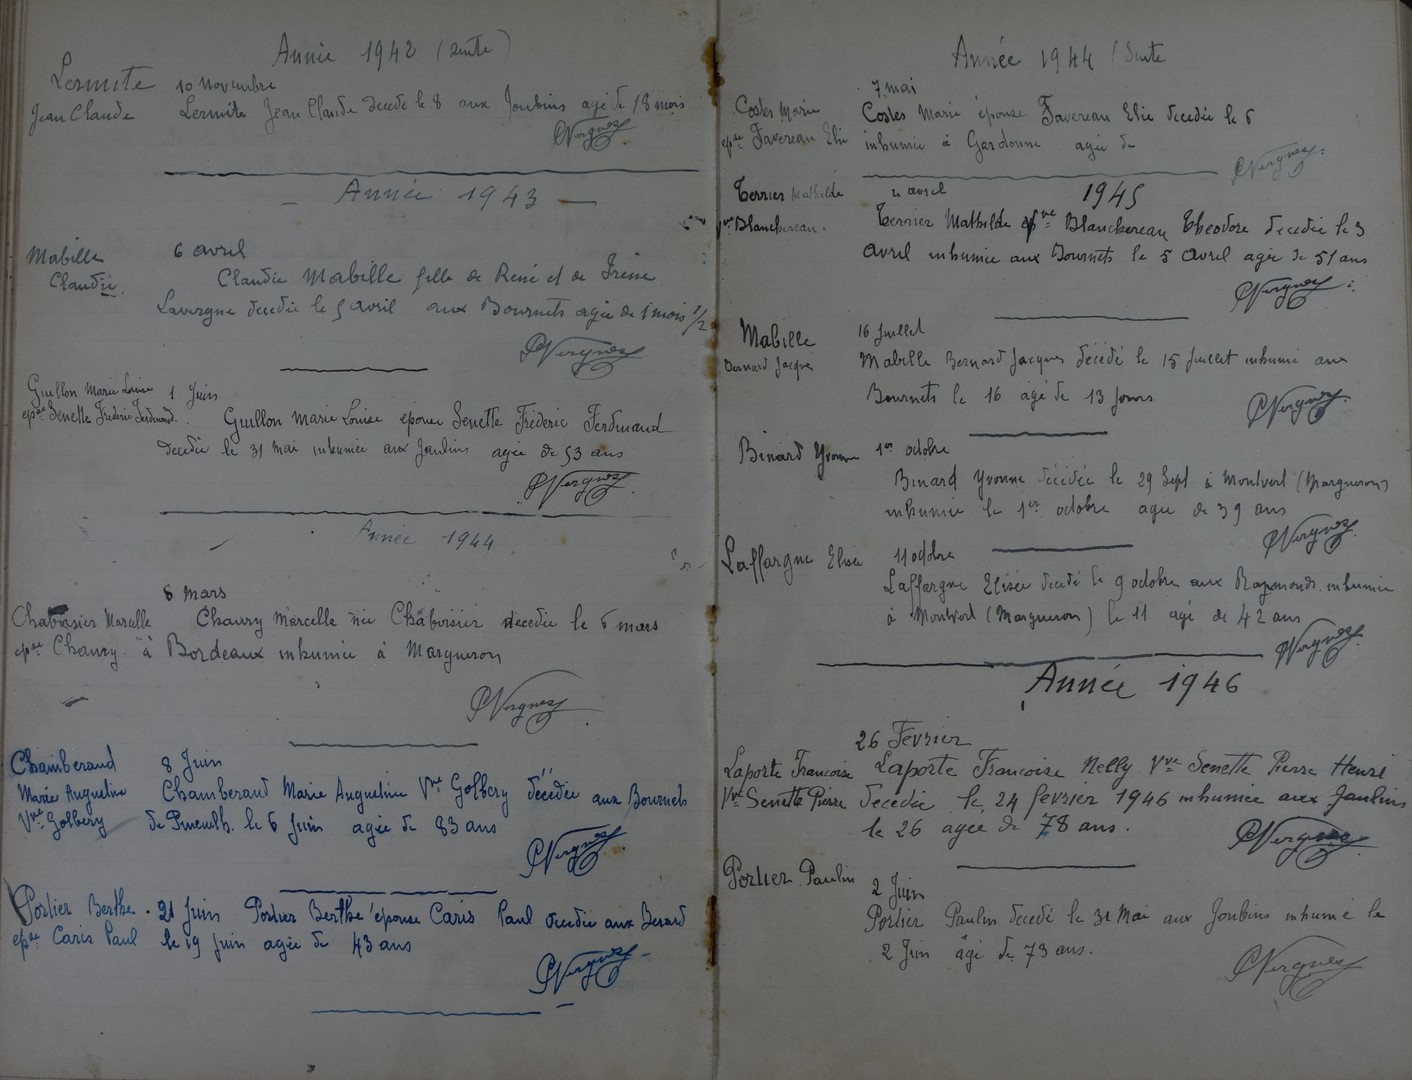 Année 1942 (suite)
Lermite 10 novembre
Jean Claude Lermite Jean Claude décédé le 8 aux Joubins agé de 18 mois
CVergnes
Année 1943
Mabille 6 avril
Claudie. Claudie Mabille fille de René et de Irène
Lavergne décédée le 5 avril aux Bournets agée de 1 mois 1/2
CVergnes
Guillon Marie Louise 1 Juin
epse Senette Fréderic Ferdinand. Guillon Marie Louise epouse Senette Fréderic Ferdinand
décédée le 31 mai inhumée aux Jaulins agée de 53 ans
CVergnes
Année 1944
8 mars
Chaboisier Marcelle Chaury Marcelle née Chaboisier decedée le 6 mars
epse Chaury. à Bordeaux inhumée à Margueron
CVergnes
Chamberaud 8 Juin
Marie Angueline Chamberaud Marie Angueline Vve Golbery décédée aux Bournets
Vve Golbery de Pineuilh. le 6 Juin agée de 83 ans
CVergnes
Portier Berthe. 21 Juin Portier Berthe épouse Caris Paul décédée aux Berard
epse Caris Paul le 19 Juin agée de 43 ans
CVergnes
Année 1944 (Suite
7 mai
Costes Marie Costes Marie épouse Favereau Elie décédée le 6
epse Favereau Elie inhumée à Gardonne agée de
CVergnes
Terrier Mathilde 4 avril 1945
vve Blanchereau. Terrier Mathilde vve Blanchereau Theodore décédée le 3
avril inhumée aux Bournets le 5 avril agée de 51 ans
CVergnes
Mabille 16 Juillet
Bernard Jacques Mabille Bernard Jacques décédé le 15 Juillet inhumé aux
Bournets le 16 agé de 13 jours
CVergnes
Binard Yvonne 1er octobre
Binard Yvonne décédée le 29 Sept à Montvert (Margueron)
inhumée le 1er octobre agee de 39 ans
CVergnes
Laffargue Elisée 11 octobre
Laffargue Elisée décédé le 9 octobre aux Raymonds. inhumé
à Montvert (Margueron) le 11 agé de 42 ans
CVergnes
Année 1946
26 Fevrier
Laporte Francoise Laporte Francoise Nelly Vve Senette Pierre Henri
Vve Senette Pierre Décédée le 24 fevrier 1946 inhumée aux Jaulins
le 26 agée de 78 ans.
CVergnes
Portier Paulin 2 Juin
Portier Paulin décédé le 31 Mai aux Joubins inhumé le
2 Juin âgé de 73 ans.
CVergnes